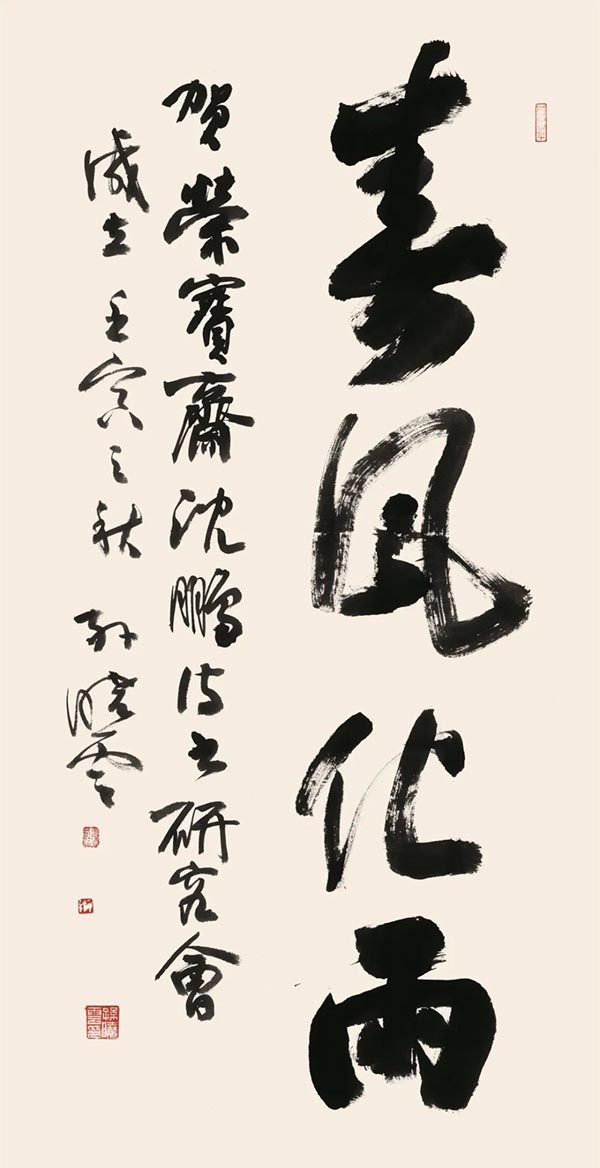 春風化雨
賀榮寶齋沈鵬诗书研究會
成立 壬寅之秋 孙曉雲